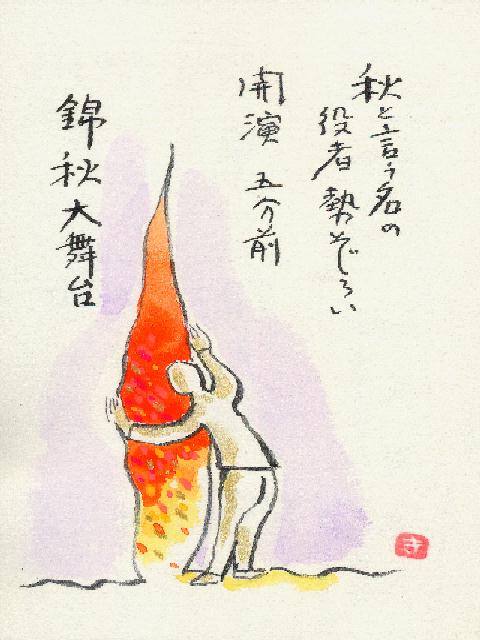 秋と言う名の
役者 勢ぞろい
開演 五分前
錦秋大舞台